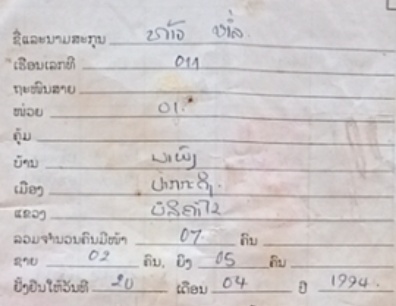 ຊື່ແລະນາມສະກຸນ
ເຮືອນເລກທີ 011
ຖະໜົນສາຍ
ໜ່ວຍ 01
ຄຸ້ມ
ບ້ານ
ເມືອງ ປາກກະດິງ
ແຂວງ ບໍລິຄຳໄຊ
ລວມຈຳນວນຄົນມີໜ້າ 07 ຄົນ
ຊາຍ 02 ຄົນ, ຍິງ 05 ຄົນ
ຍັ້ງຢືນໃຫ້ວັນທີ 20 ເດືອນ 04 ປີ 1994